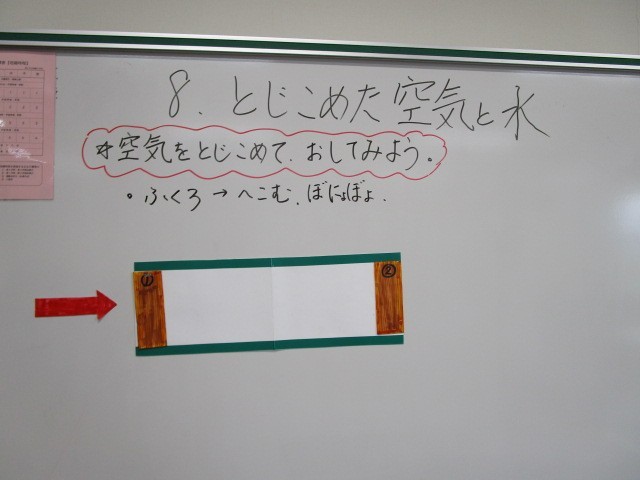 8. とじこめた空気と水
*空気をとじこめて、おしてみよう。
• ふくろ → へこむ、ぼにょぼよ.
①
②